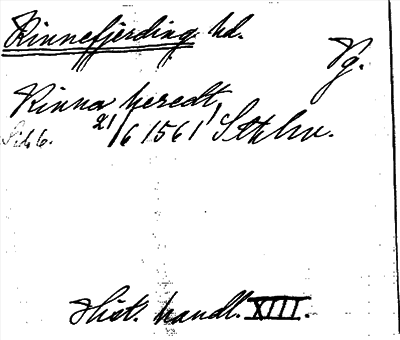 Kinnefjerding hd.
Vg.
Kinna heredt,
S. 66. 21/6 1561 Sthlm.
Hist. handl. XIII.